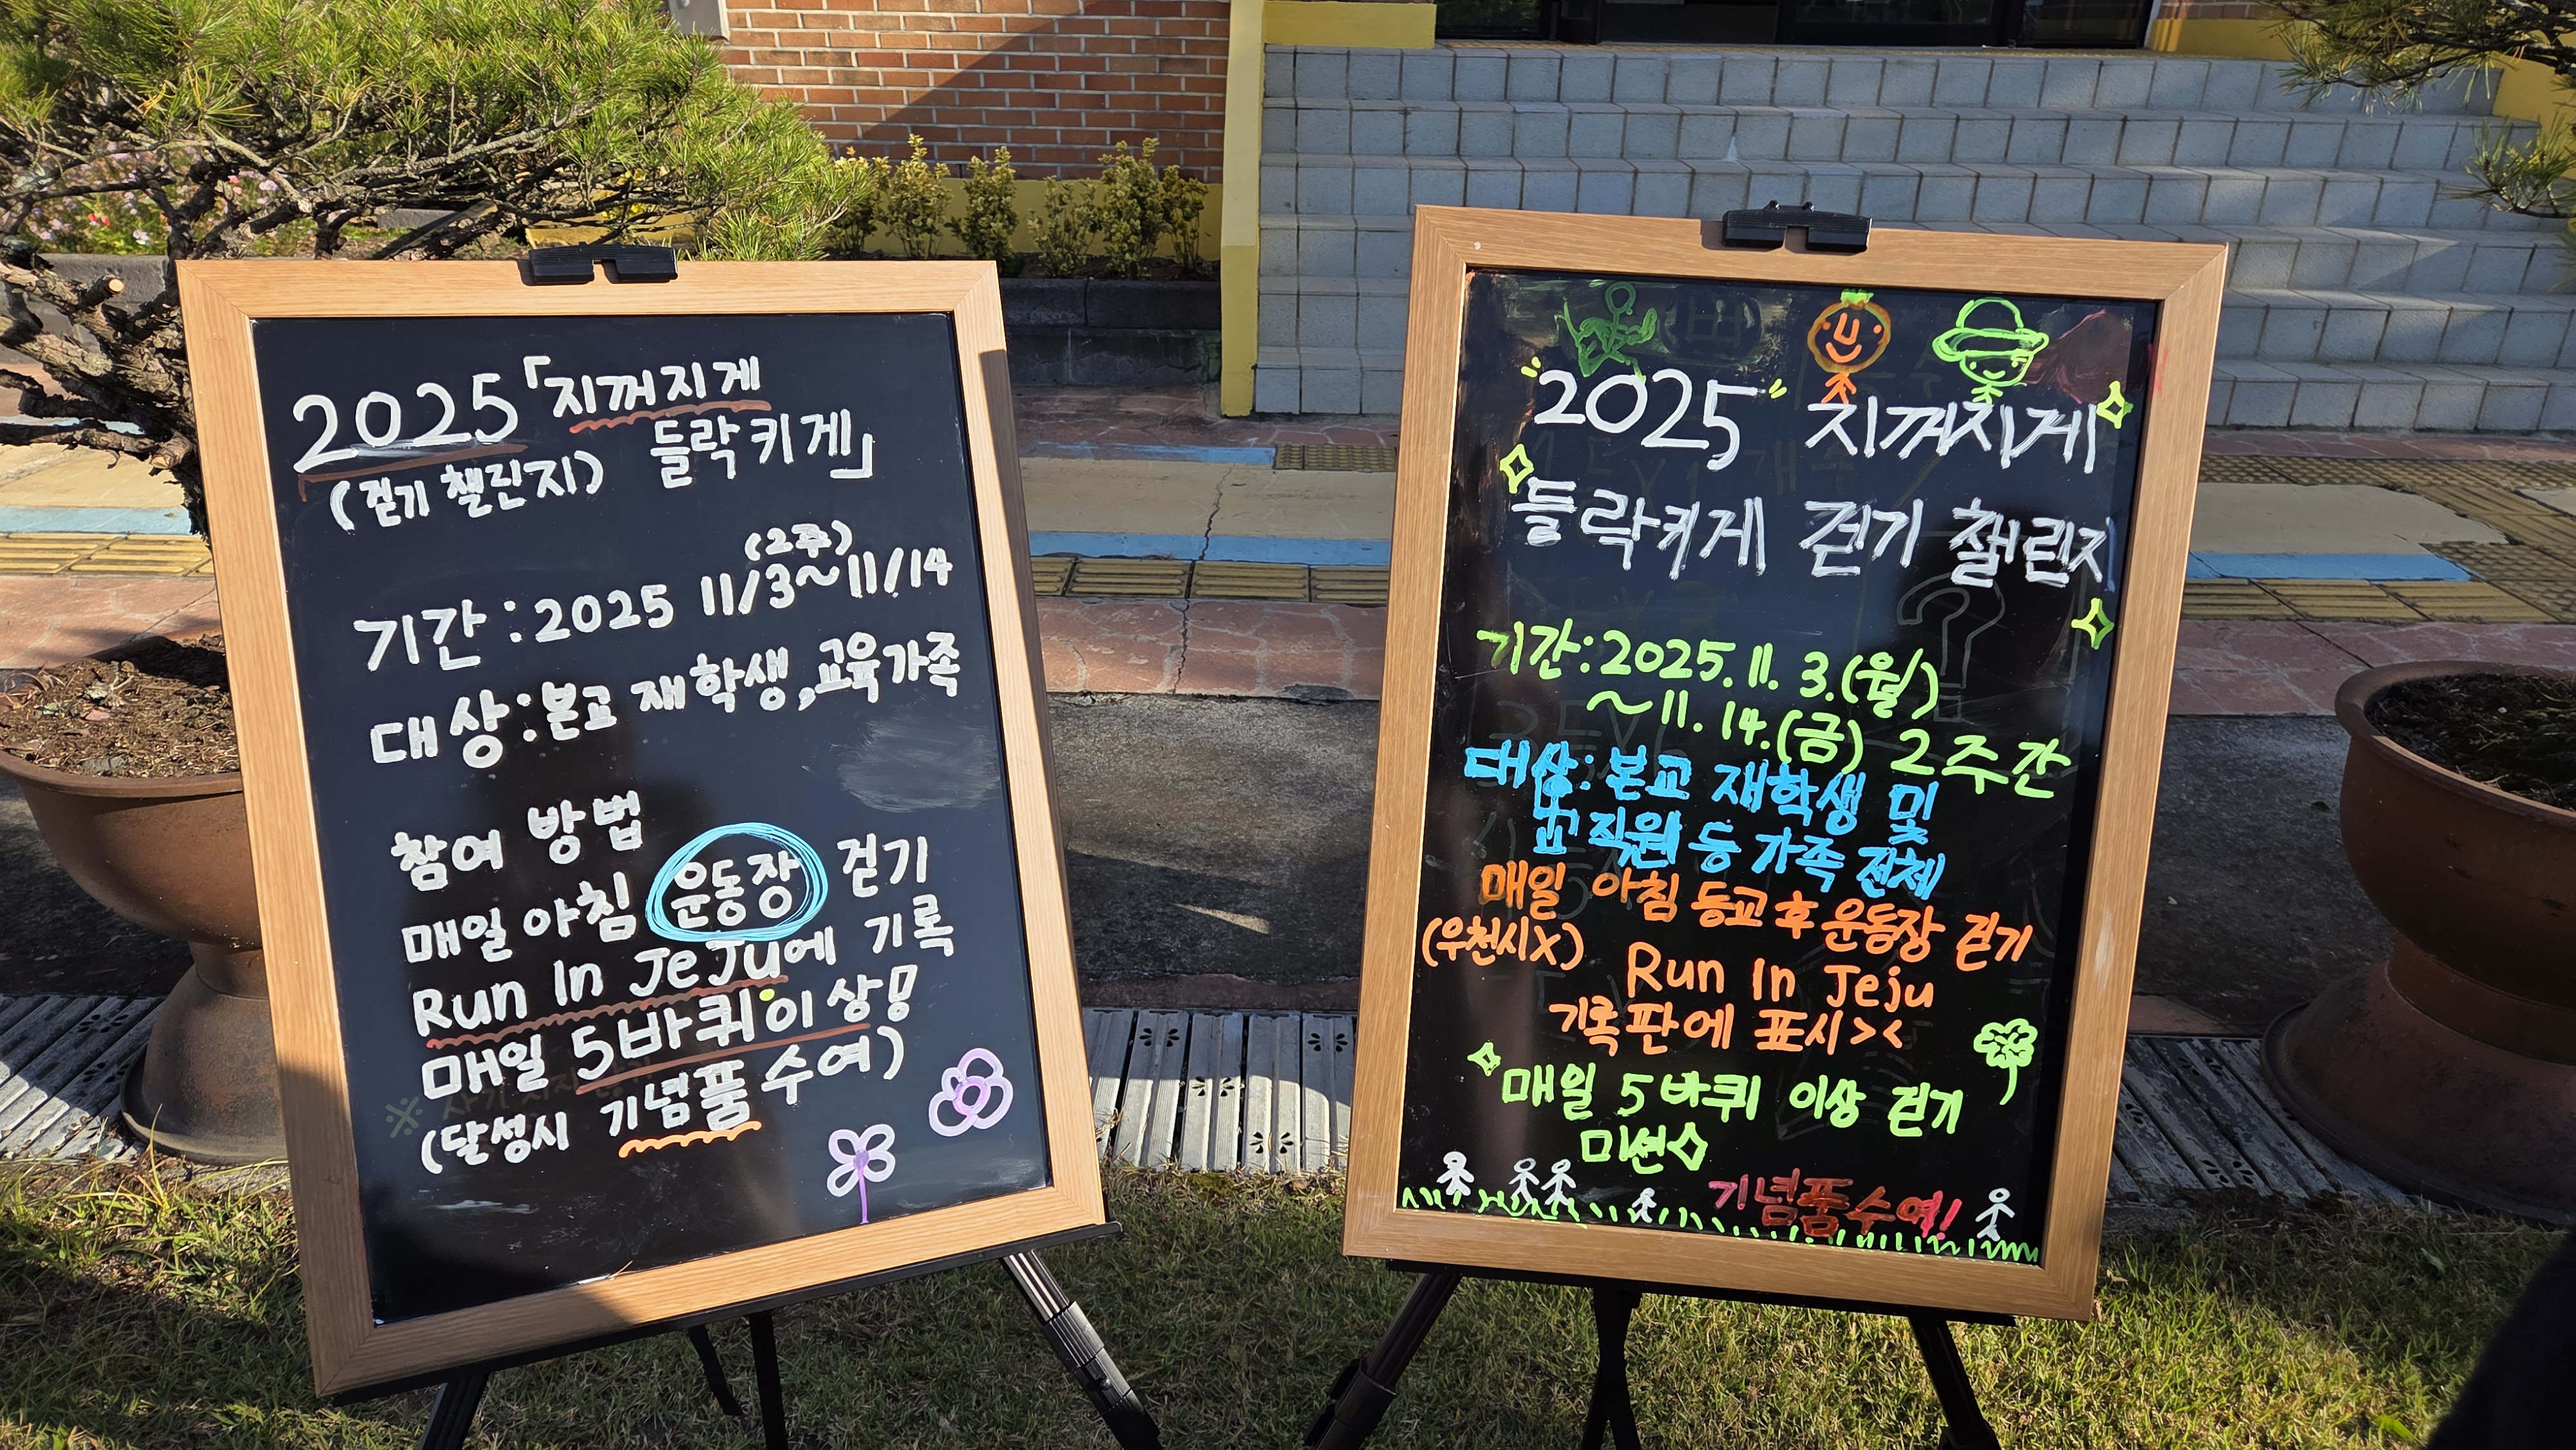 2025 「지꺼지게
(걷기 챌린지) 들락키게」
(2주)
기간 : 2025 11/3~11/14
대상 : 본교 재학생, 교육가족
참여 방법
매일 아침 운동장 걷기
Run In JeJu에 기록
매일 5바퀴 이상!
(달성시 기념품 수여)
"2025" 지꺼지게
들락키게 걷기 챌린지
기간 : 2025. 11. 3.(월)
~11. 14.(금) 2주간
대상 : 본교 재학생 및
교직원 등 가족 전체
매일 아침 등교 후 운동장 걷기
(우천시X) Run In Jeju
기록판에 표시><
매일 5바퀴 이상 걷기
미션
기념품 수여!